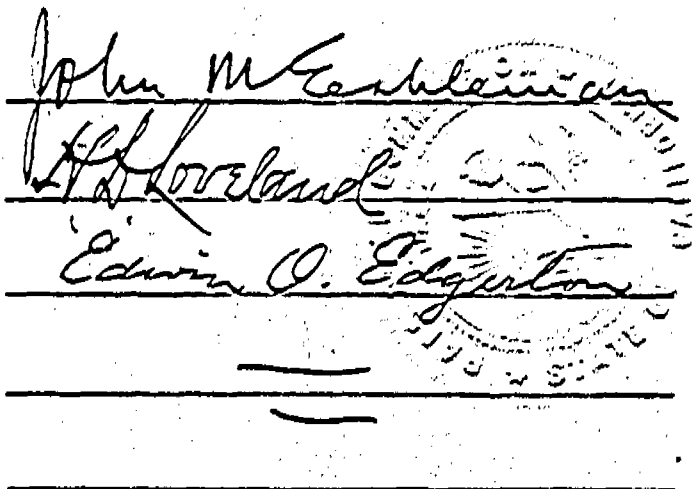 John M Eshleman
H D Loveland
Edwin O. Edgerton